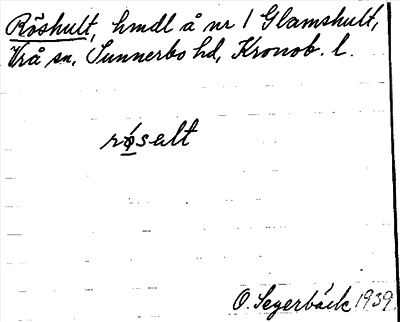 Röshult, hmdl å nr 1 Glamshult,
Vrå sn, Sunnerbo hd, Kronob. l.
rø̱salt
O. Segerbäck 1939.